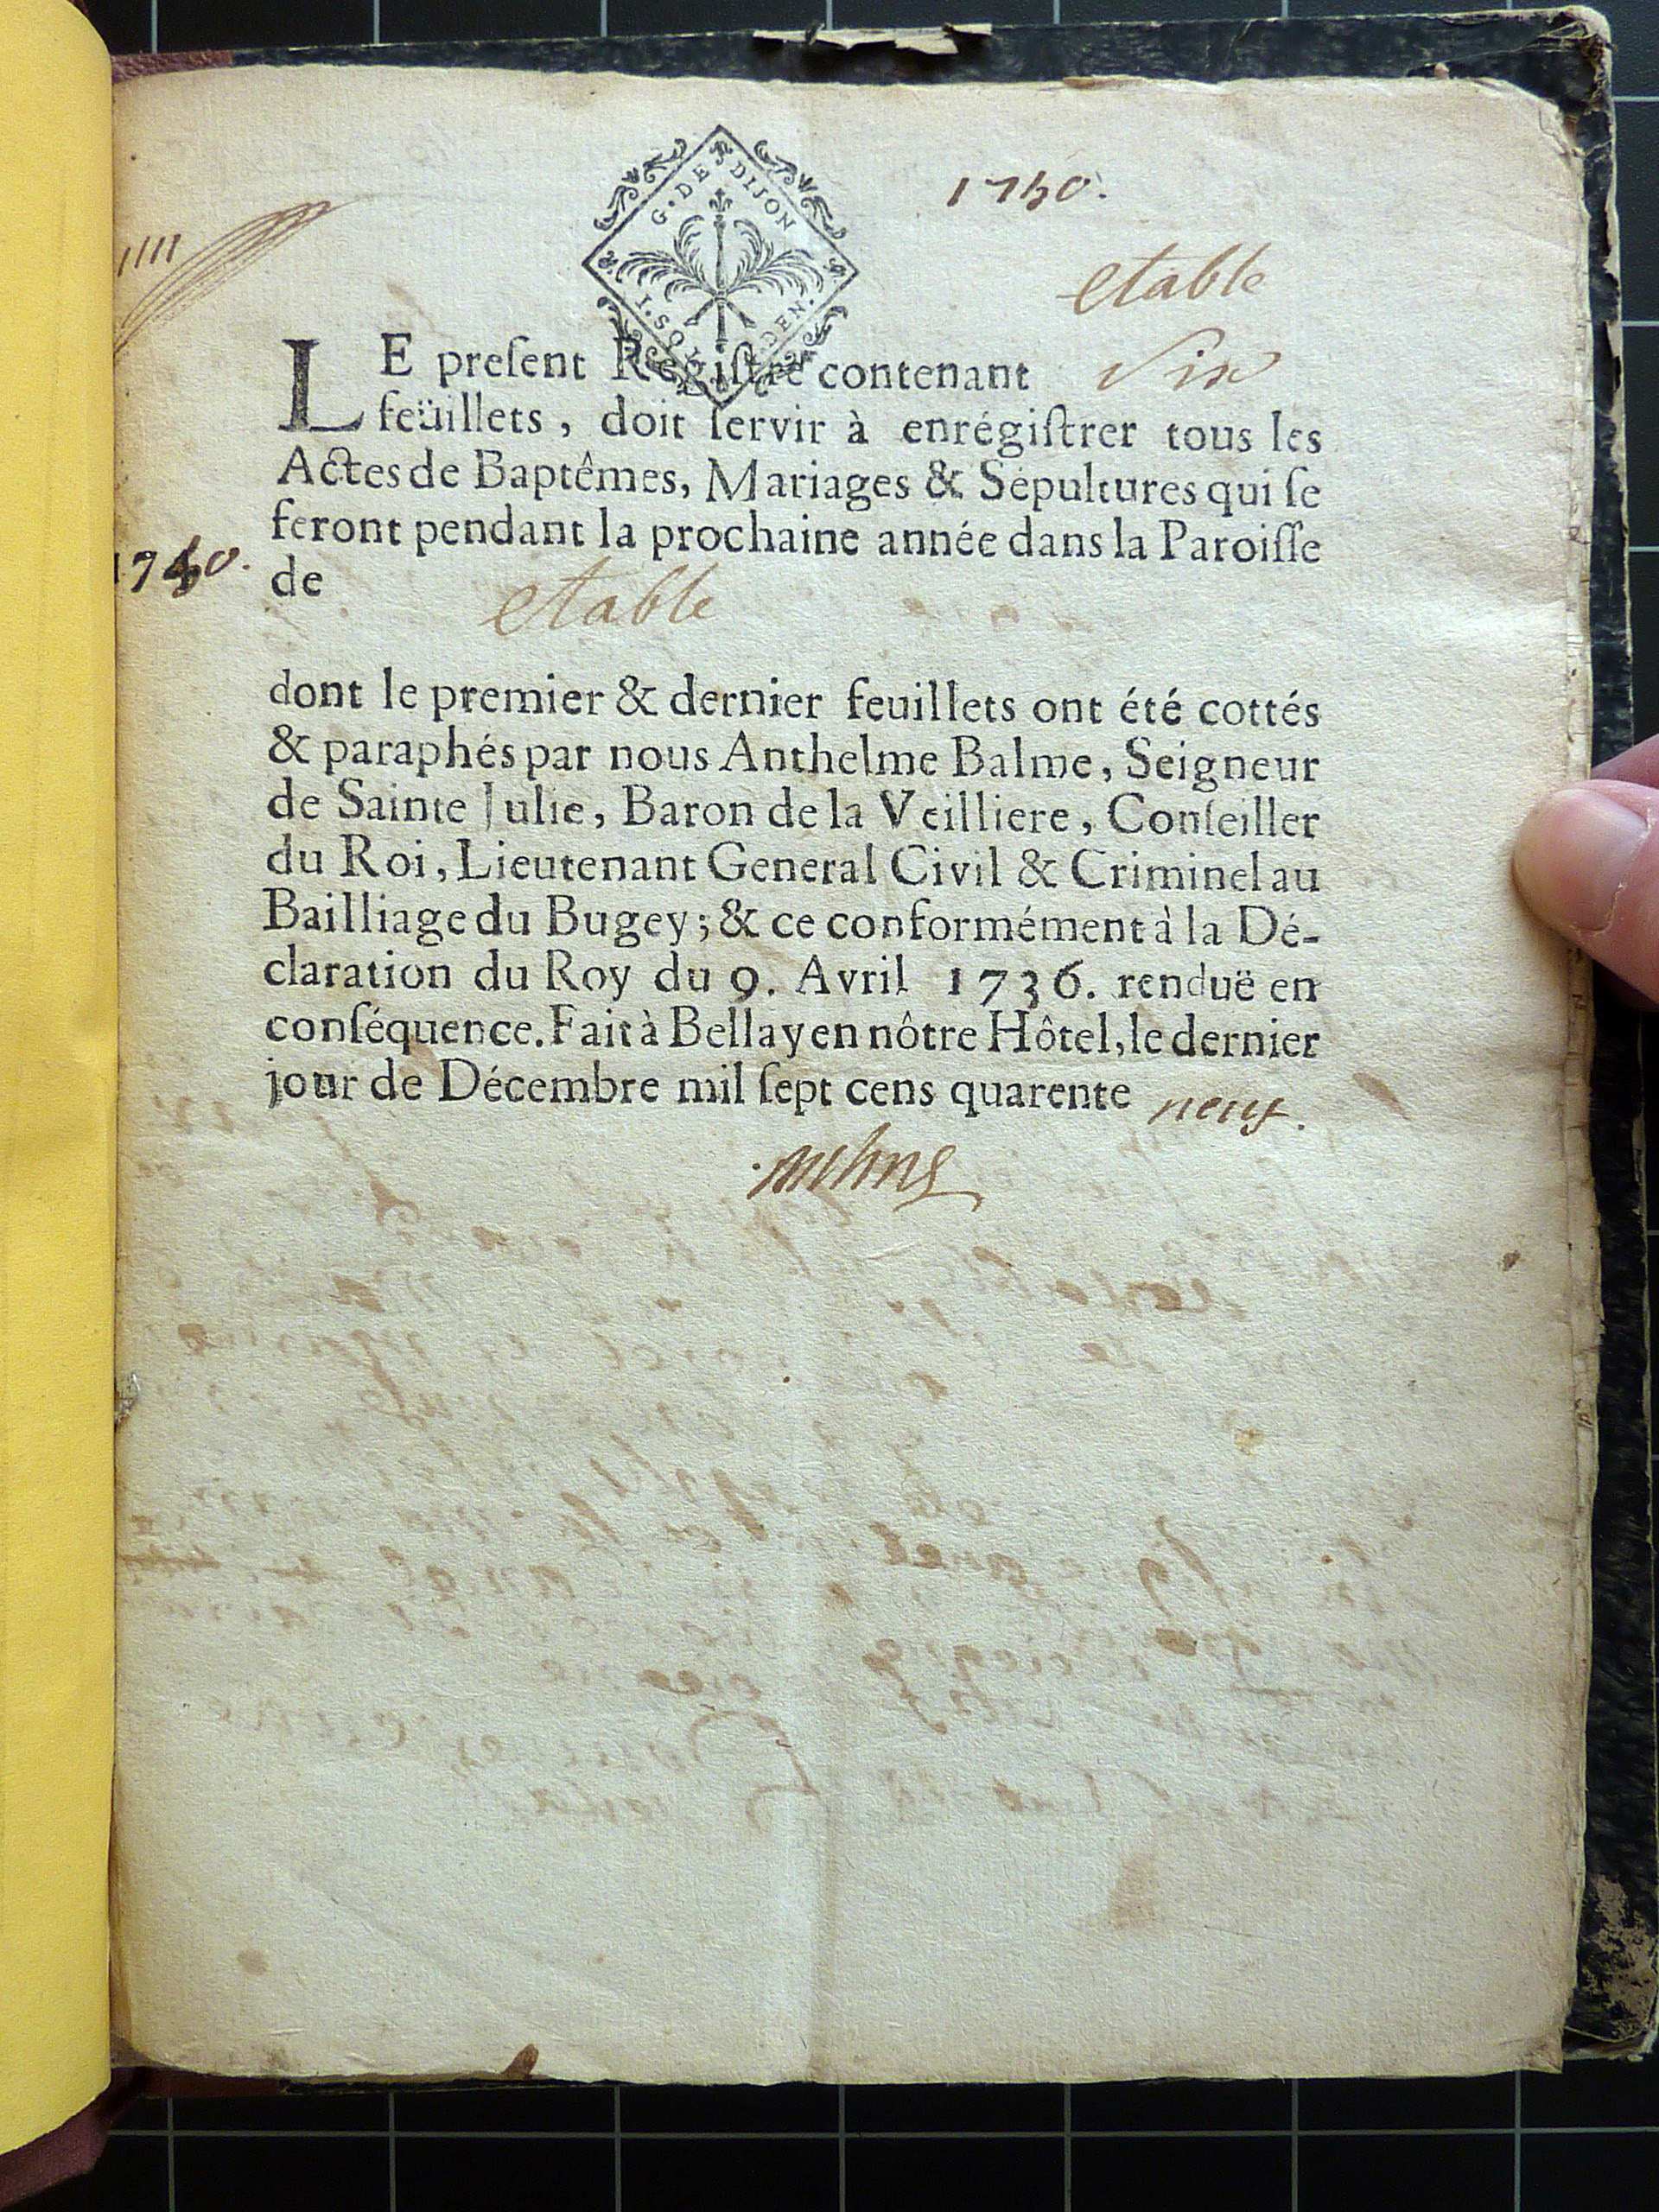 G. DE DIJON
I. SOL DEN.
1750.
etable
LE preſent Regiſtre contenant Six
feüillets, doit ſervir à enrégiſtrer tous les
Actes de Baptêmes, Mariages & Sépultures qui ſe
feront pendant la prochaine année dans la Paroiſſe
1750.
de etable
dont le premier & dernier feuillets ont été cottés
& paraphés par nous Anthelme Balme, Seigneur
de Sainte Julie, Baron de la Veilliere, Conſeiller
du Roi, Lieutenant General Civil & Criminel au
Bailliage du Bugey; & ce conformément à la Dé-
claration du Roy du 9. Avril 1736. renduë en
conſéquence. Fait à Bellay en nôtre Hôtel, le dernier
jour de Décembre mil ſept cens quarente neuf.